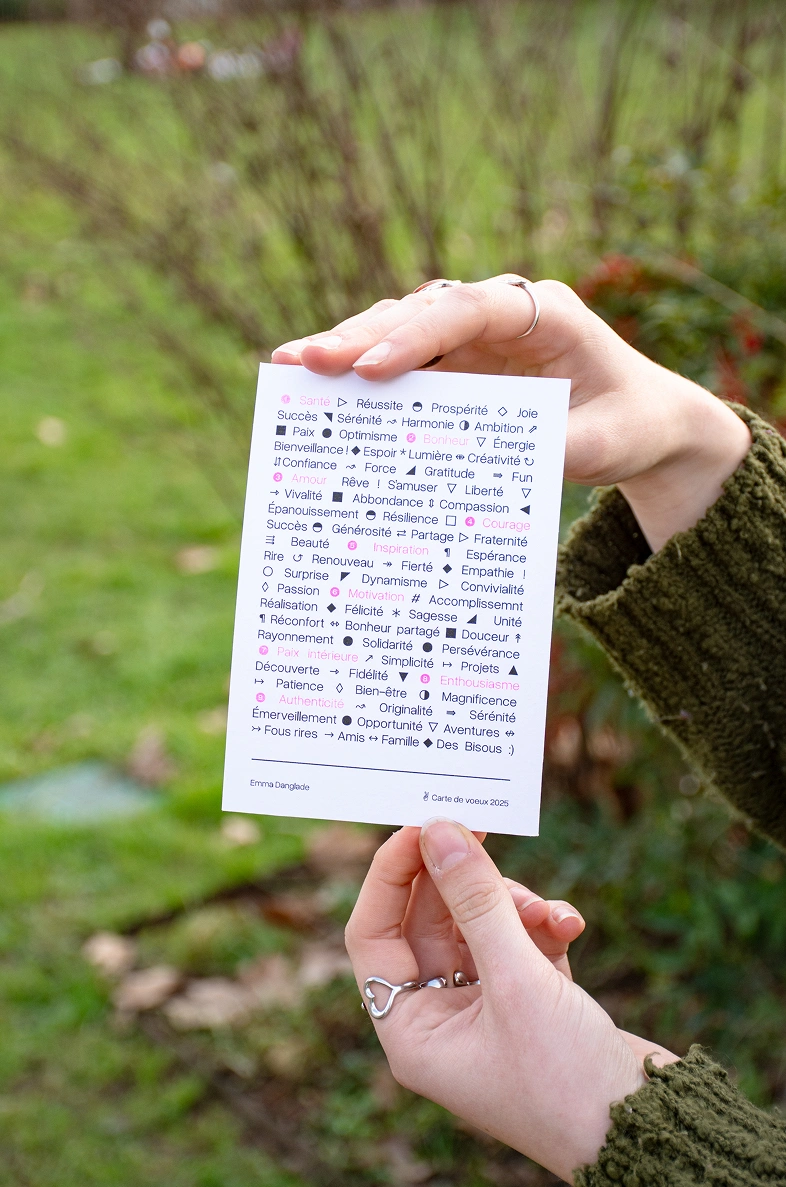 ❶ Santé ▷ Réussite ◓ Prospérité ◇ Joie
Succès ◥ Sérénité ⤳ Harmonie ◑ Ambition ⇗
■ Paix ● Optimisme ❷ Bonheur ▽ Énergie
Bienveillance ! ◆ Espoir * Lumière ⇼ Créativité ↻
⇵ Confiance ⤳ Force ◢ Gratitude ⇒ Fun
❸ Amour Rêve ! S'amuser ▽ Liberté ▽
→ Vivalité ■ Abbondance ⇕ Compassion ◀
Épanouissement ◓ Résilience □ ❹ Courage
Succès ◓ Générosité ⇄ Partage ▷ Fraternité
⇶ Beauté ❺ Inspiration ¶ Espérance
Rire ↺ Renouveau ↠ Fierté ◆ Empathie !
○ Surprise ◤ Dynamisme ▷ Convivialité
◊ Passion ❻ Motivation # Accomplissemnt
Réalisation ◆ Félicité * Sagesse ◢ Unité
¶ Réconfort ⇔ Bonheur partagé ■ Douceur ↟
Rayonnement ● Solidarité ● Persévérance
❼ Paix intérieure ↗ Simplicité ↦ Projets ▲
Découverte → Fidélité ▼ ❽ Enthousiasme
↦ Patience ◊ Bien-être ◑ Magnificence
❾ Authenticité ⤳ Originalité ⇒ Sérénité
Émerveillement ● Opportunité ▽ Aventures ⇎
↣ Fous rires → Amis ↔ Famille ◆ Des Bisous :)
Emma Danglade
✌ Carte de voeux 2025